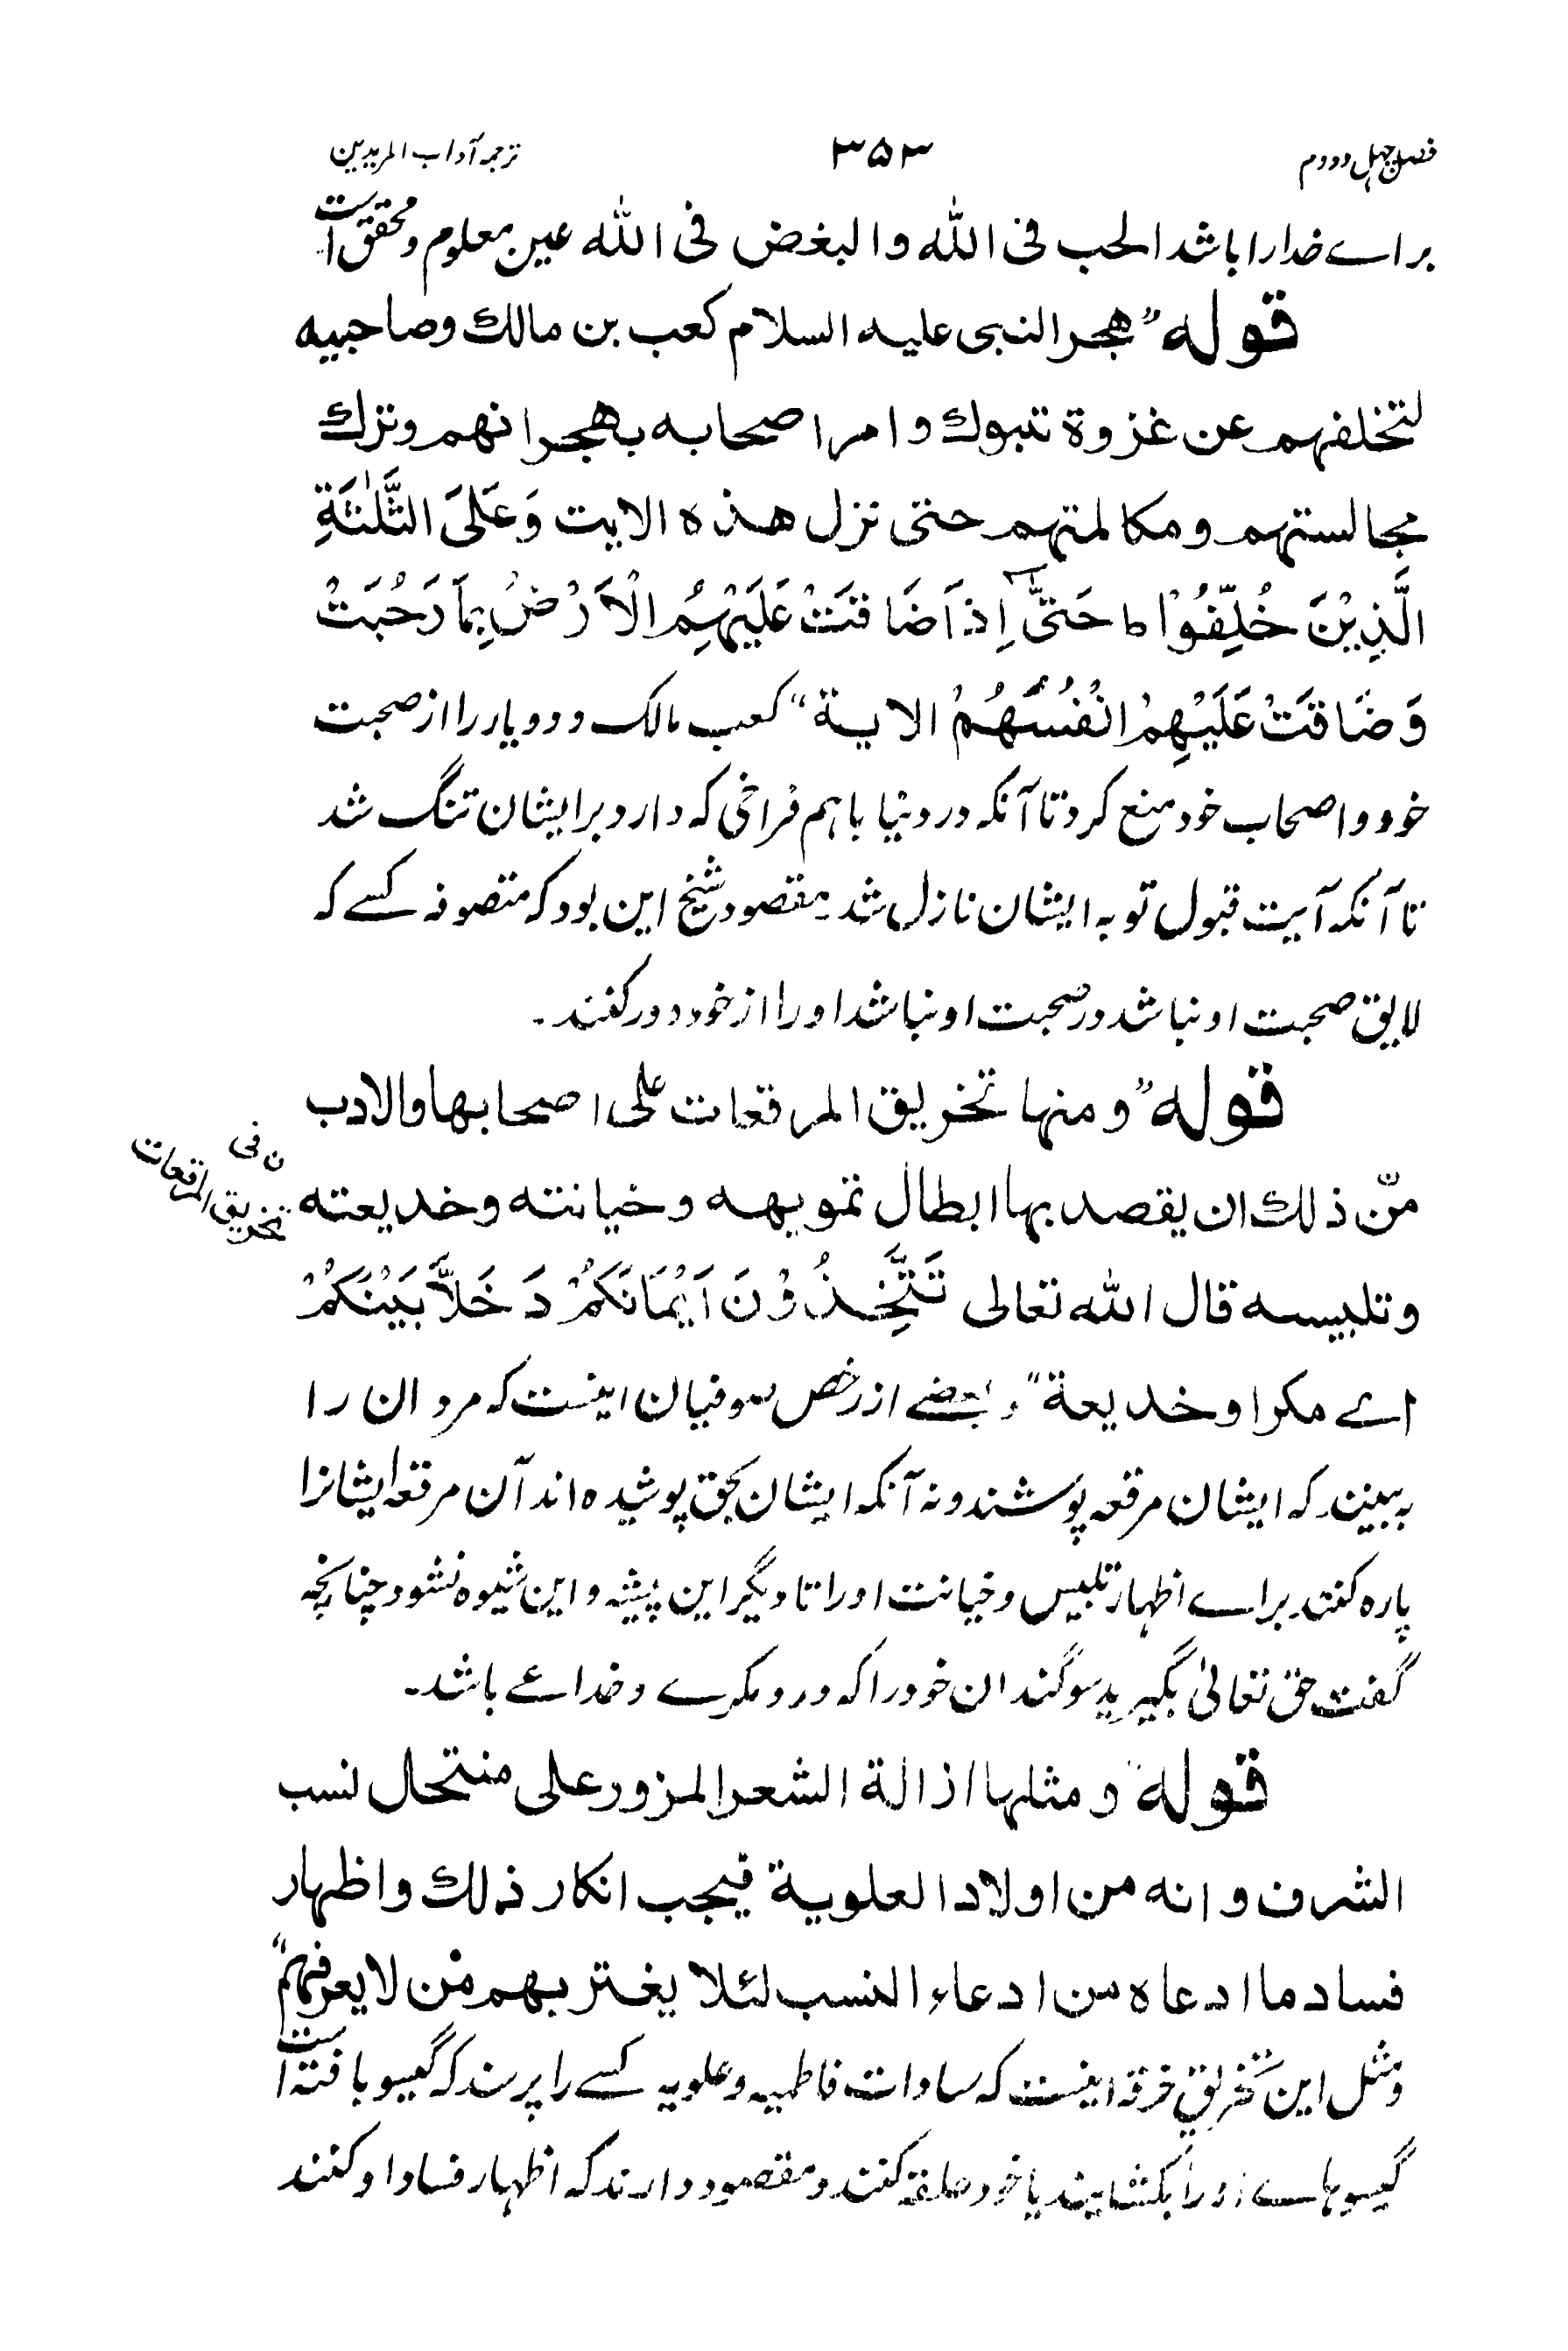 فصل چہل و دوم ۳۵۳ ترجمہ آداب المریدین
براے خدا را باشد الحب فی اللہ والبغض فی اللہ عین معلوم و محقق است
قوله "هجر النبی علیه السلام کعب بن مالك وصاحبیه
لتخلفهم عن غزوة تبوك وامر اصحابه بهجرانهم وترك
مجالستهم ومکالمتهم حتی نزل هذه الایت وَعَلَی الثَّلٰثَةِ
الَّذِیْنَ خُلِّفُوْا ط حَتّٰٓی اِذَا ضَاقَتْ عَلَیْهِمُ الْاَرْضُ بِمَا رَحُبَتْ
وَضَاقَتْ عَلَیْهِمْ اَنْفُسُهُمْ الایة" کعب مالک و دو یار را از صحبت
خود و اصحاب خود منع کرد تا آنکہ در دنیا با ہم فراخی کہ دارد بر ایشان تنگ شد
تا آنکہ آیت قبول توبہ ایشان نازل شد۔ مقصود شیخ این بود کہ متصوفہ کسے کہ
لایق صحبت او نباشد در صحبت او نباشد او را از خود دور کنند۔
قوله "ومنها تخریق المرقعات علی اصحابها والادب
من ذلك ان یقصد بها ابطال تمویهه وخیانته وخدیعته
ن فی
تخریق المرقعات
وتلبیسه قال الله تعالی تَتَّخِذُوْنَ اَیْمَانَکُمْ دَخَلًا بَیْنَکُمْ
اے مکرا وخدیعة" و بعضے از رخص صوفیان اینست کہ مردان را
بہ بینند کہ ایشان مرقعہ پوشند و نہ آنکہ ایشان بحق پوشیدہ اند آن مرقعہ ایشانرا
پارہ کنند براے اظہار تلبیس و خیانت او را تا دیگر این پیشہ و این شیوہ نشود چنانچہ
گفت حق تعالیٰ بگیرید سوگندان خود را کہ درو مکرے و خداعے باشد۔
قوله "ومثلها ازالة الشعر المزور علی منتحال نسب
الشرف وانه من اولاد العلویة فیجب انکار ذلك واظهار
فساد ما ادعاه من ادعاء النسب لئلا یغتر بهم من لایعرفهم"
و مثل این تخریق خرقہ اینست کہ سادات فاطمیہ و علویہ کسے را پرسند کہ گیسو بافتہ است
گیسوہاے او را بکشایند یا خود حلقہ کنند و مقصود دارند کہ اظہار فساد او کنند